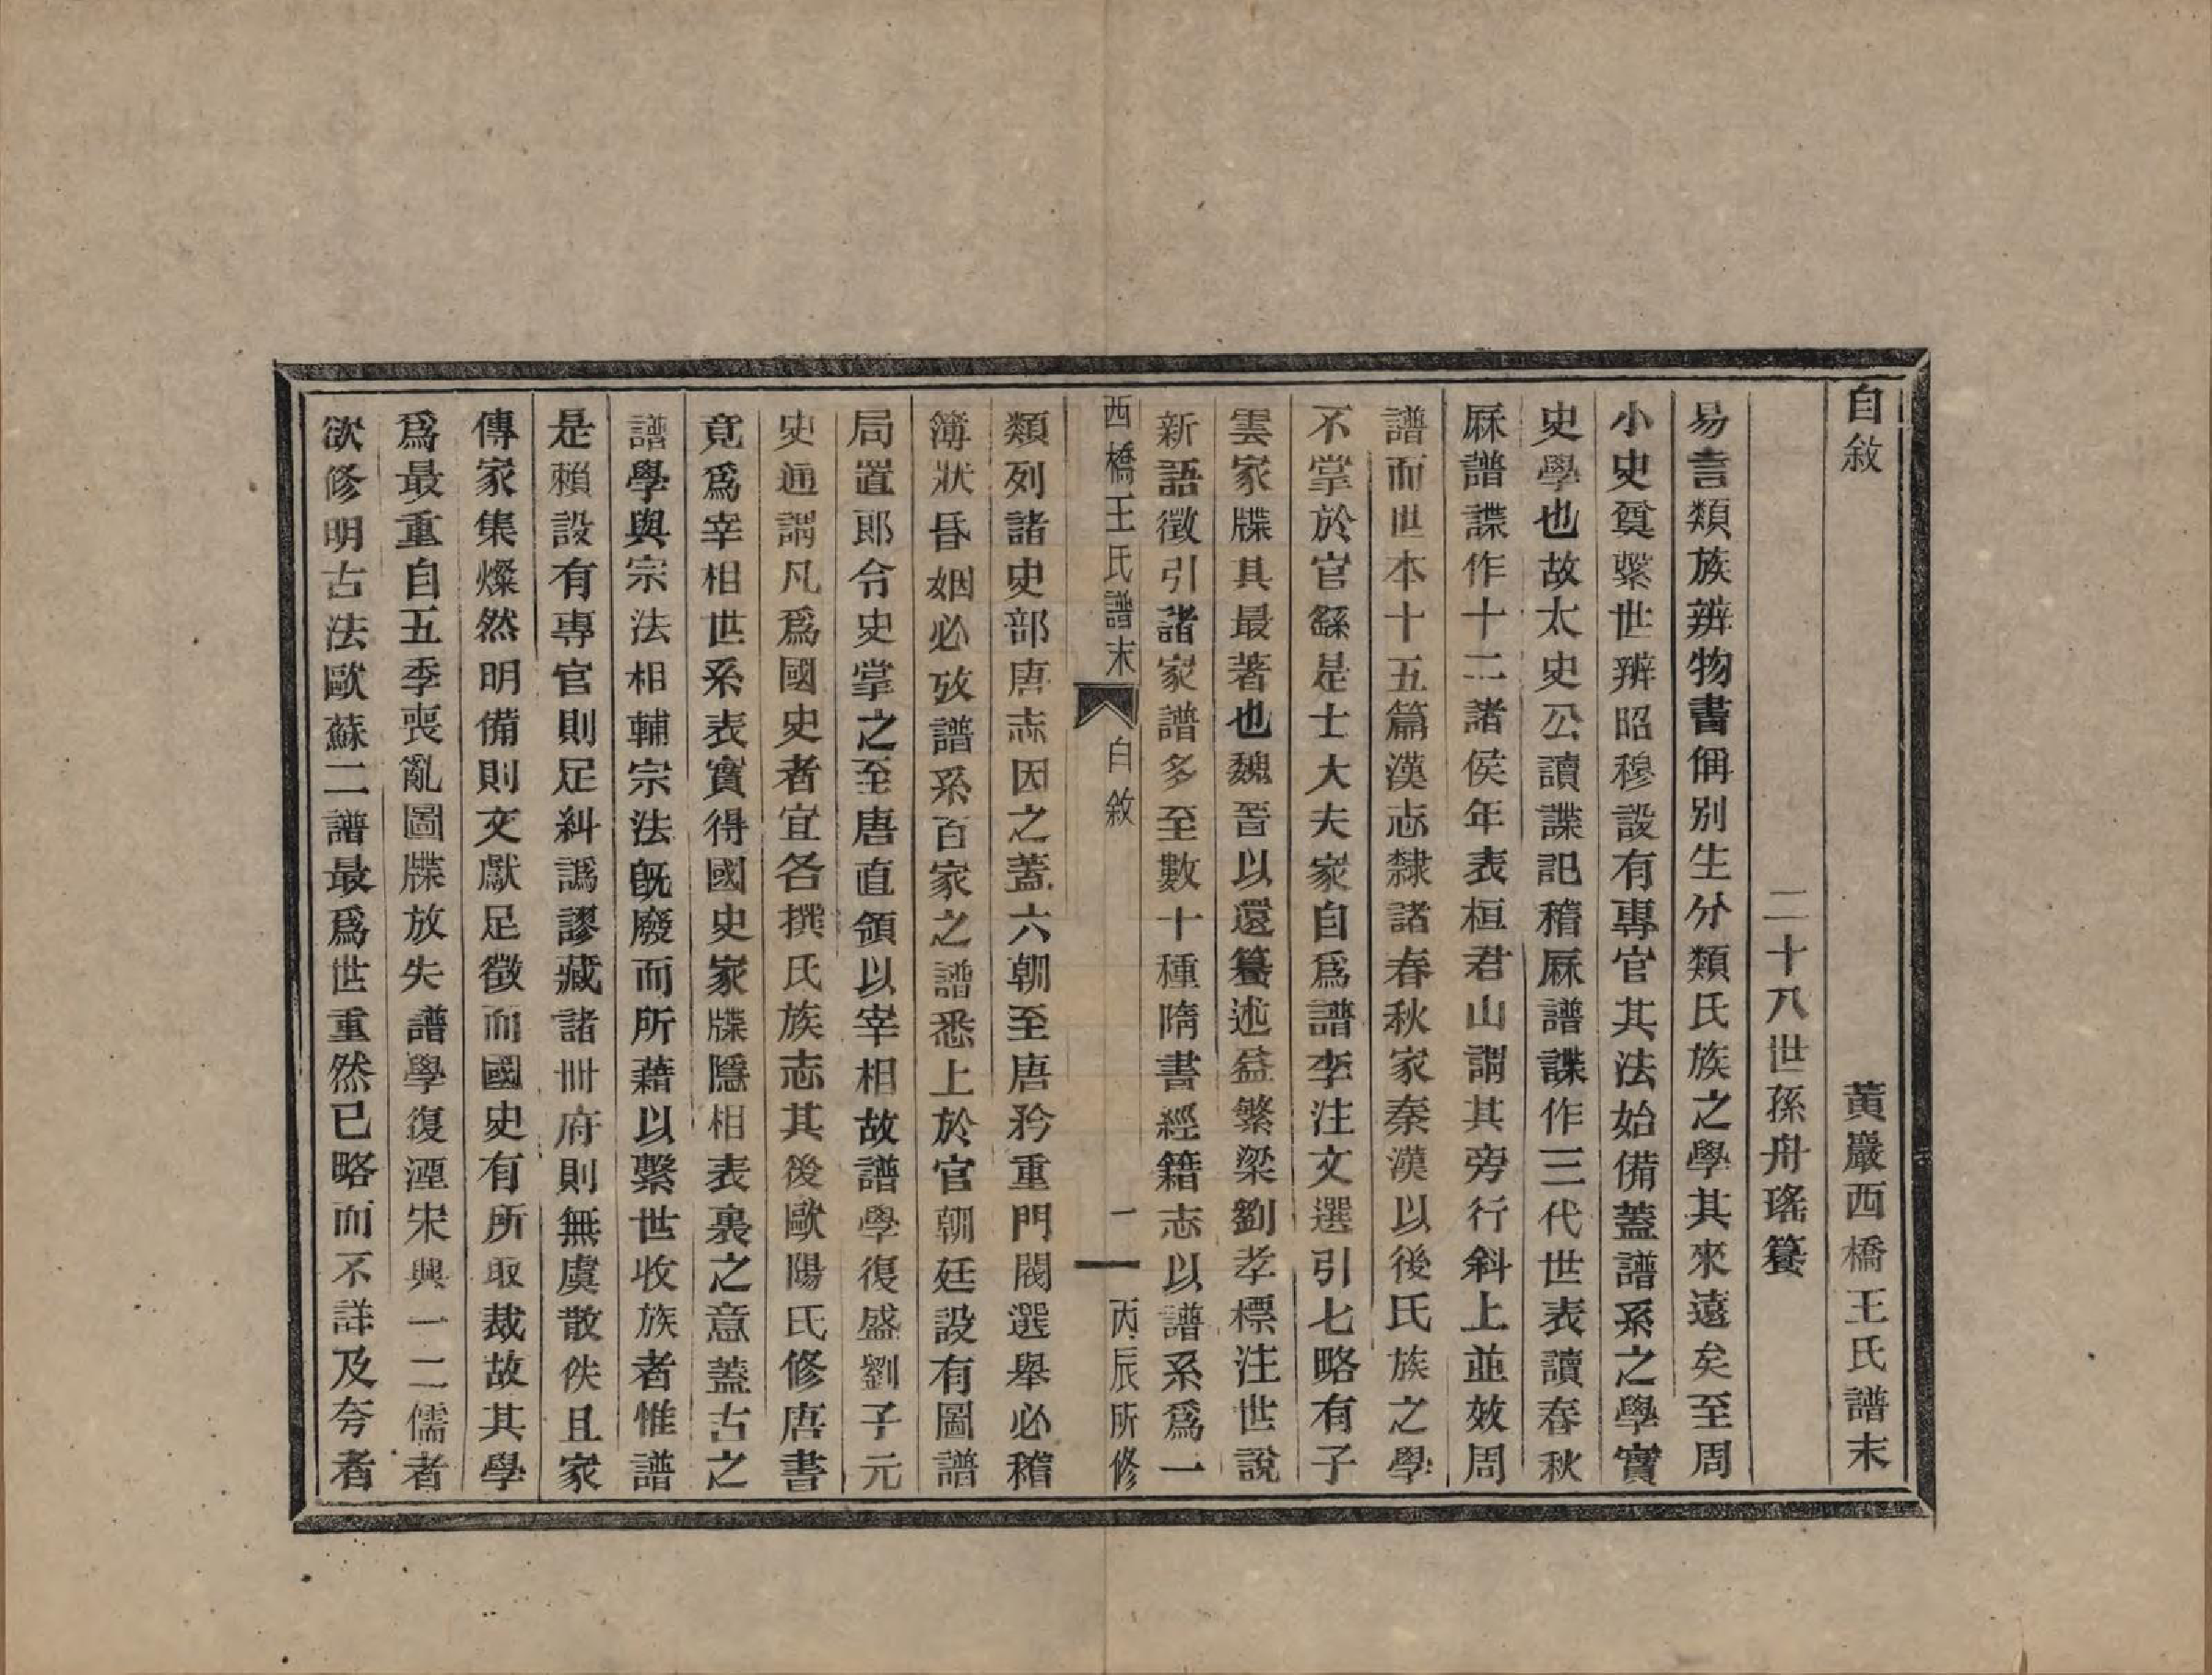 自敘　黃巖西橋王氏譜末
二十八世孫舟瑤簒
易言類族辨物書偁別生分類氏族之學其來遠矣至周
小史奠繫世辨昭穆設有專官其法始備蓋譜系之學實
史學也故太史公讀諜記稽厤譜諜作三代世表讀春秋
厤譜諜作十二諸侯年表桓君山謂其旁行斜上並效周
譜而世本十五篇漢志隸諸春秋家秦漢以後氏族之學
不掌於官繇是士大夫家自爲譜李注文選引七略有子
雲家牒其最著也魏晉以還簒述益繁梁劉孝標注世說
新語徵引諸家譜多至數十種隋書經籍志以譜系爲一
西橋王氏譜末　自敘　一　丙辰所修
類列諸史部唐志因之蓋六朝至唐矜重門閥選舉必稽
簿狀昏姻必攷譜系百家之譜悉上於官朝廷設有圖譜
局置郎令史掌之至唐直領以宰相故譜學復盛劉子元
史通謂凡爲國史者宜各撰氏族志其後歐陽氏修唐書
竟爲宰相世系表實得國史家牒隱相表裏之意蓋古之
譜學與宗法相輔宗法旣廢而所藉以繫世收族者惟譜
是賴設有專官則足糾譌謬藏諸冊府則無虞散佚且家
傳家集燦然明備則文獻足徵而國史有所取裁故其學
爲最重自五季喪亂圖牒放失譜學復湮宋興一二儒者
欲修明古法歐蘇二譜最爲世重然已略而不詳及夸者